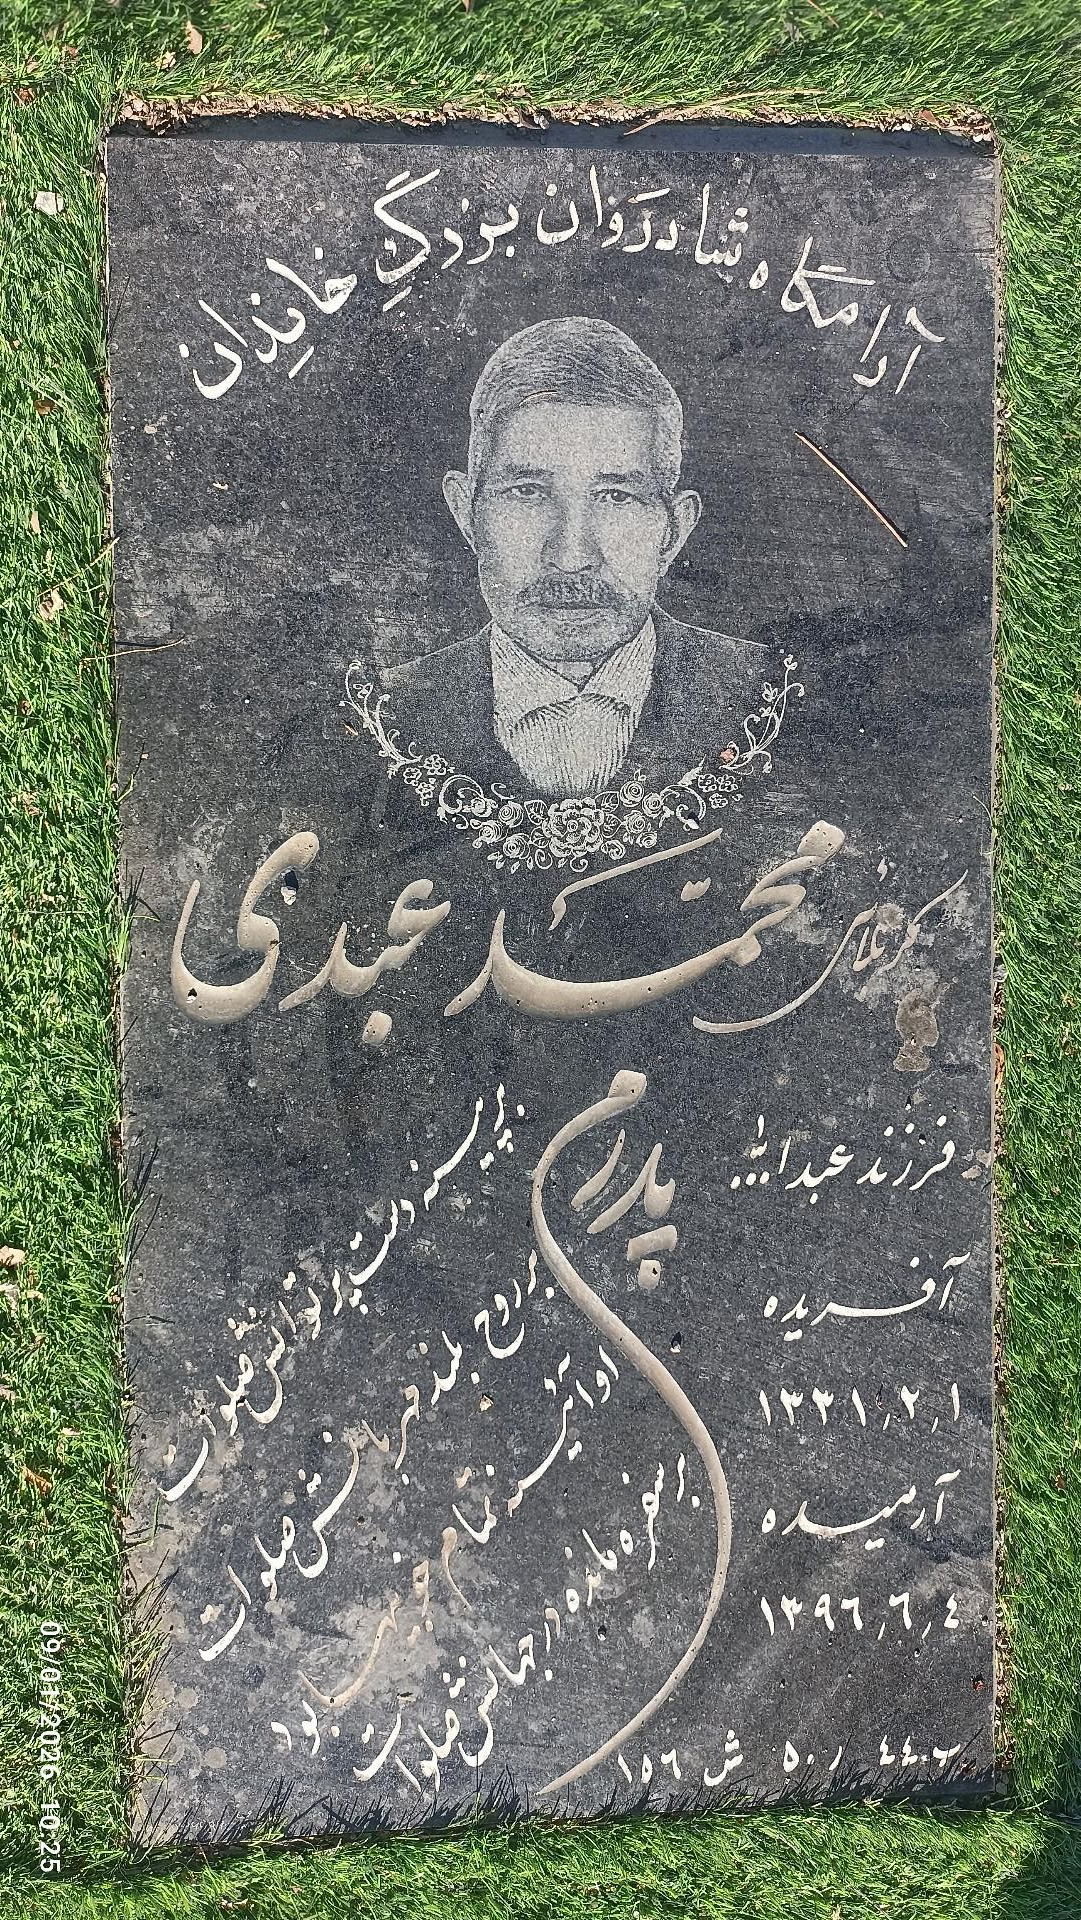 آرامگاه شادروان بزرگِ خاندان
کربلائی محمّد عبدی
فرزند عبدالله
آفریده
۱۳۳۱٫۲٫۱
آرمیده
۱۳۹۶٫۶٫۴
پدرم
بر سینه دست پر توانش صلوات
بر روح بلند و مهربانش صلوات
او آئینه تمام خوبیها بود
بر سفره مانده در جهانش صلوات
ر ۵۰ ش ۱۵۶
09/01/2026 10:25